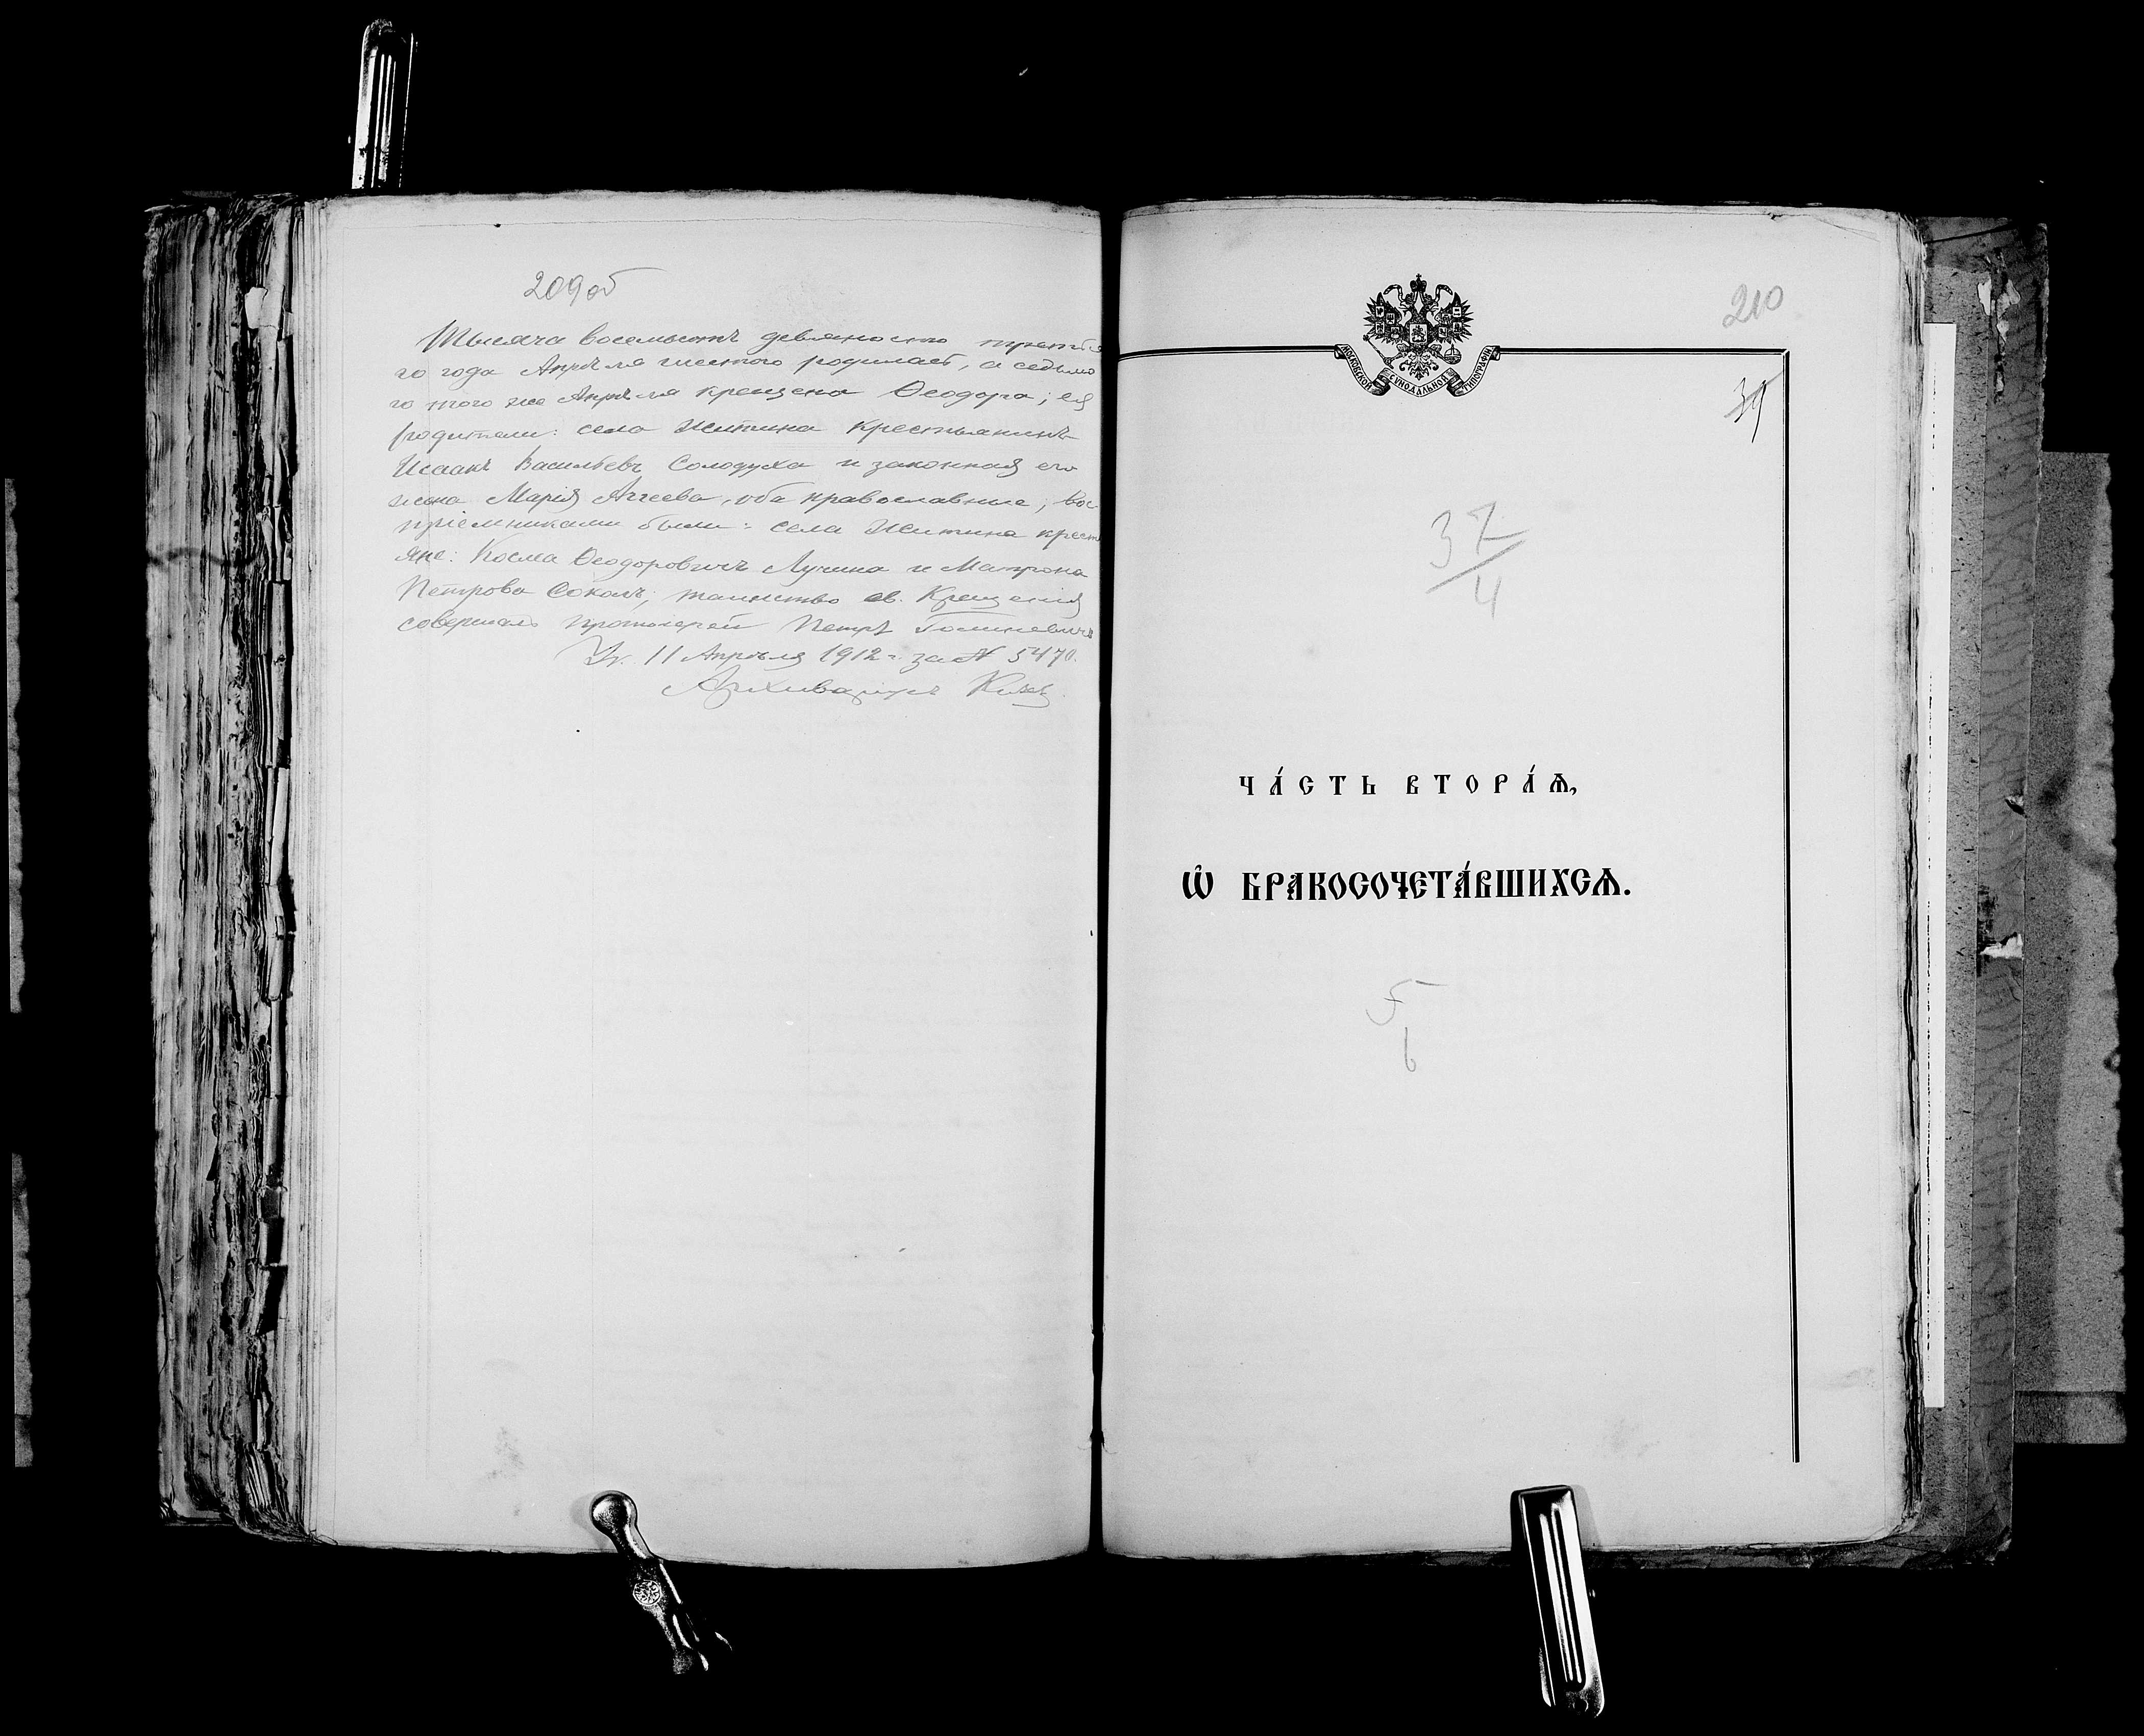 209об
Тысяча восемьсотъ девяносто третья
го года Апрѣля шестого родилась, а седьмо
го того же Апрѣля крещена Ѳеодора; ея
родители: села Житина крестьянинъ
Исаакъ Васильевъ Солодуха и законная его
жена Марія Аггеева, оба православные; вос
пріемниками были: села Житина кресть
яне: Косма Ѳеодоровичъ Лучина и Матрона
Петрова Соколъ; таинство св. Крещенія
совершалъ протоіерей Петръ
11 Апрѣля 1912 г. за № 5470.
Архиваріусъ
210
МОСКОВСКОЙ СѴНОДАЛЬНОЙ ТИПОГРАФІИ
37
4
ЧА́СТЬ ВТОРА́Ѧ,
Ѽ БРАКОСОЧЕТА́ВШИХСѦ.
5
6